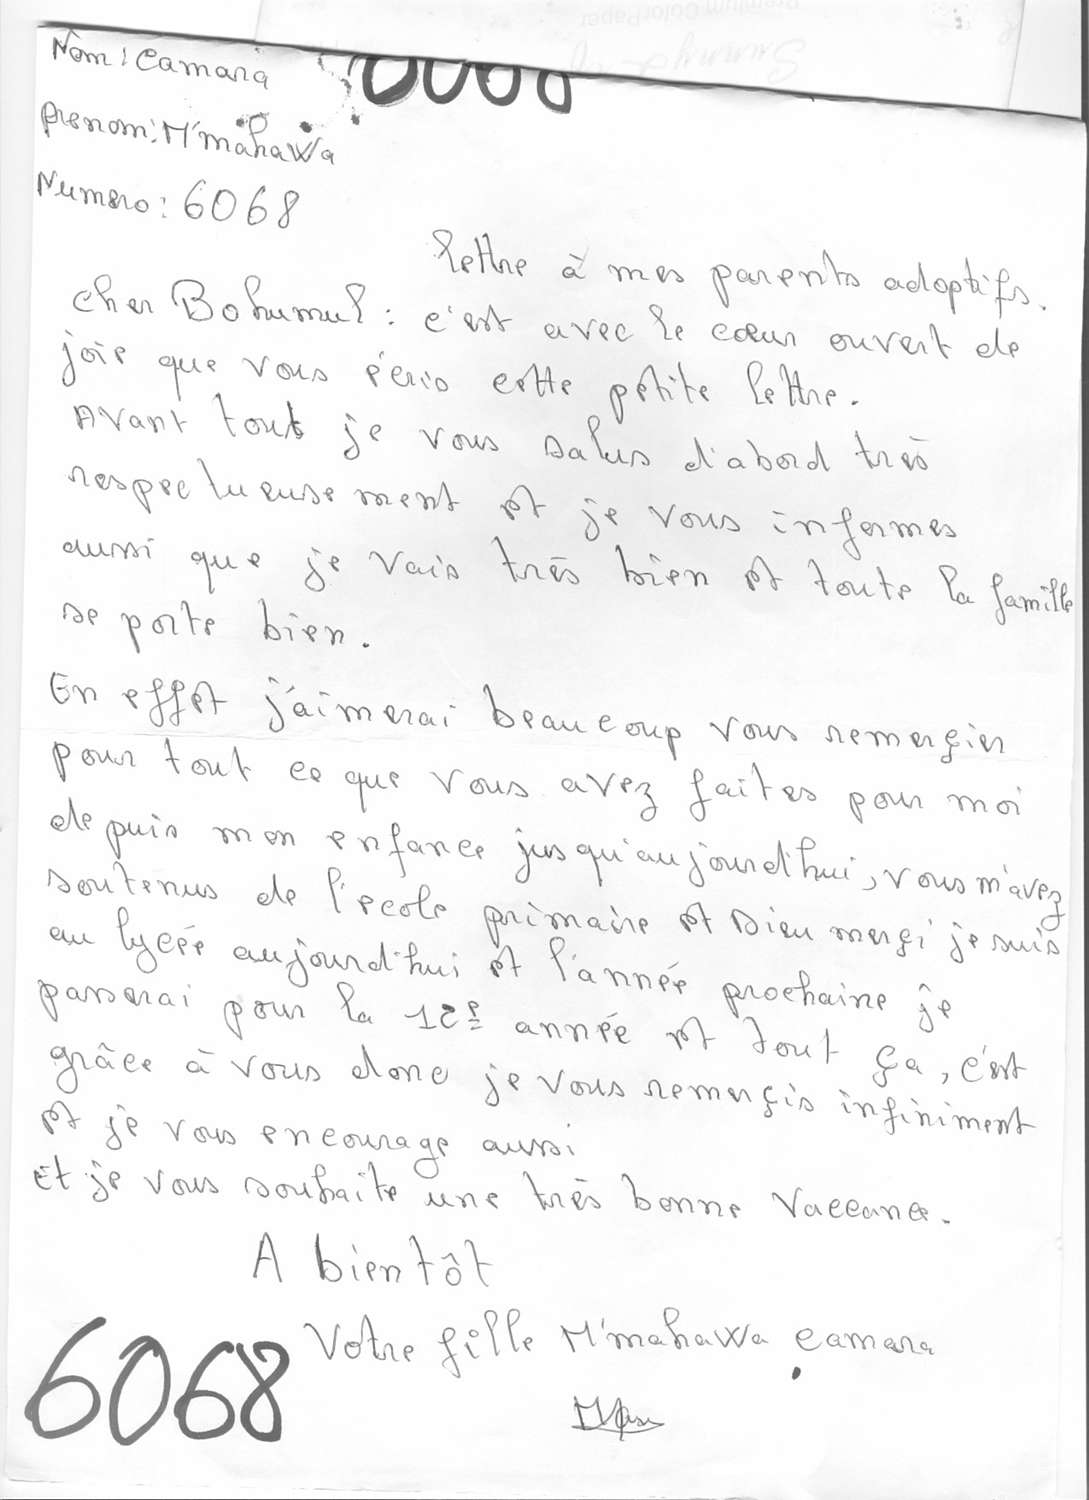 Nom: Camara
prenom: M'mahaWa
Numero: 6068
lettre à mes parents adoptifs.
cher Bohumul: c'est avec le cœur ouvert de
joie que vous écris cette petite lettre.
Avant tout je vous salus d'abord très
respectueusement et je vous informes
aussi que je vais très bien et toute la famille
se porte bien.
En effet j'aimerai beaucoup vous remerçier
pour tout ce que vous avez faites pour moi
depuis mon enfance jusqu'aujourd'hui, vous m'avez
soutenus de l'ecole primaire et Dieu merçi je suis
au lycée aujourd'hui et l'année prochaine je
passerai pour la 12e année et tout ça, c'est
grâce à vous donc je vous remerçis infiniment
et je vous encourage aussi
Et je vous souhaite une très bonne Vaccance.
A bientôt
Votre fille M'mahaWa camara
6068